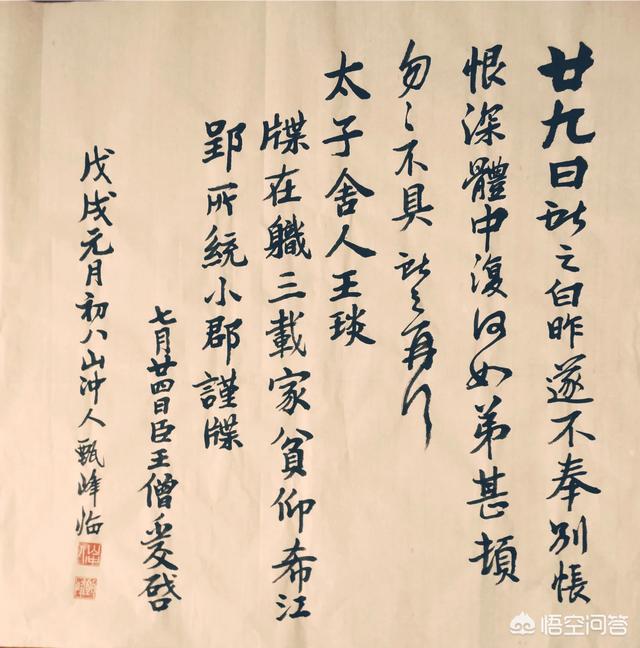 廿九日獻之白昨遂不奉別悵
恨深體中復何如弟甚頓
匆々不具獻之再拜
太子舍人王琰
牒在職三載家貧仰希江
郢所統小郡謹牒
七月廿四日臣王僧虔啓
戊戌元月初八山冲人甄峰临
悟空问答